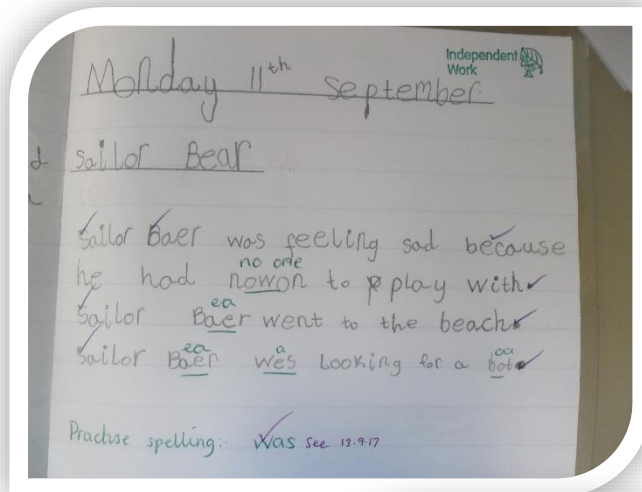 Independent
Work
Monday 11th September
Sailor Bear
Sailor Baer was feeling sad because
no one
he had nowon to play with.
ea
Sailor Baer went to the beach.
ea a oa
Sailor Baer wes looking for a bot.
Practise spelling:- Was See 13.9.17